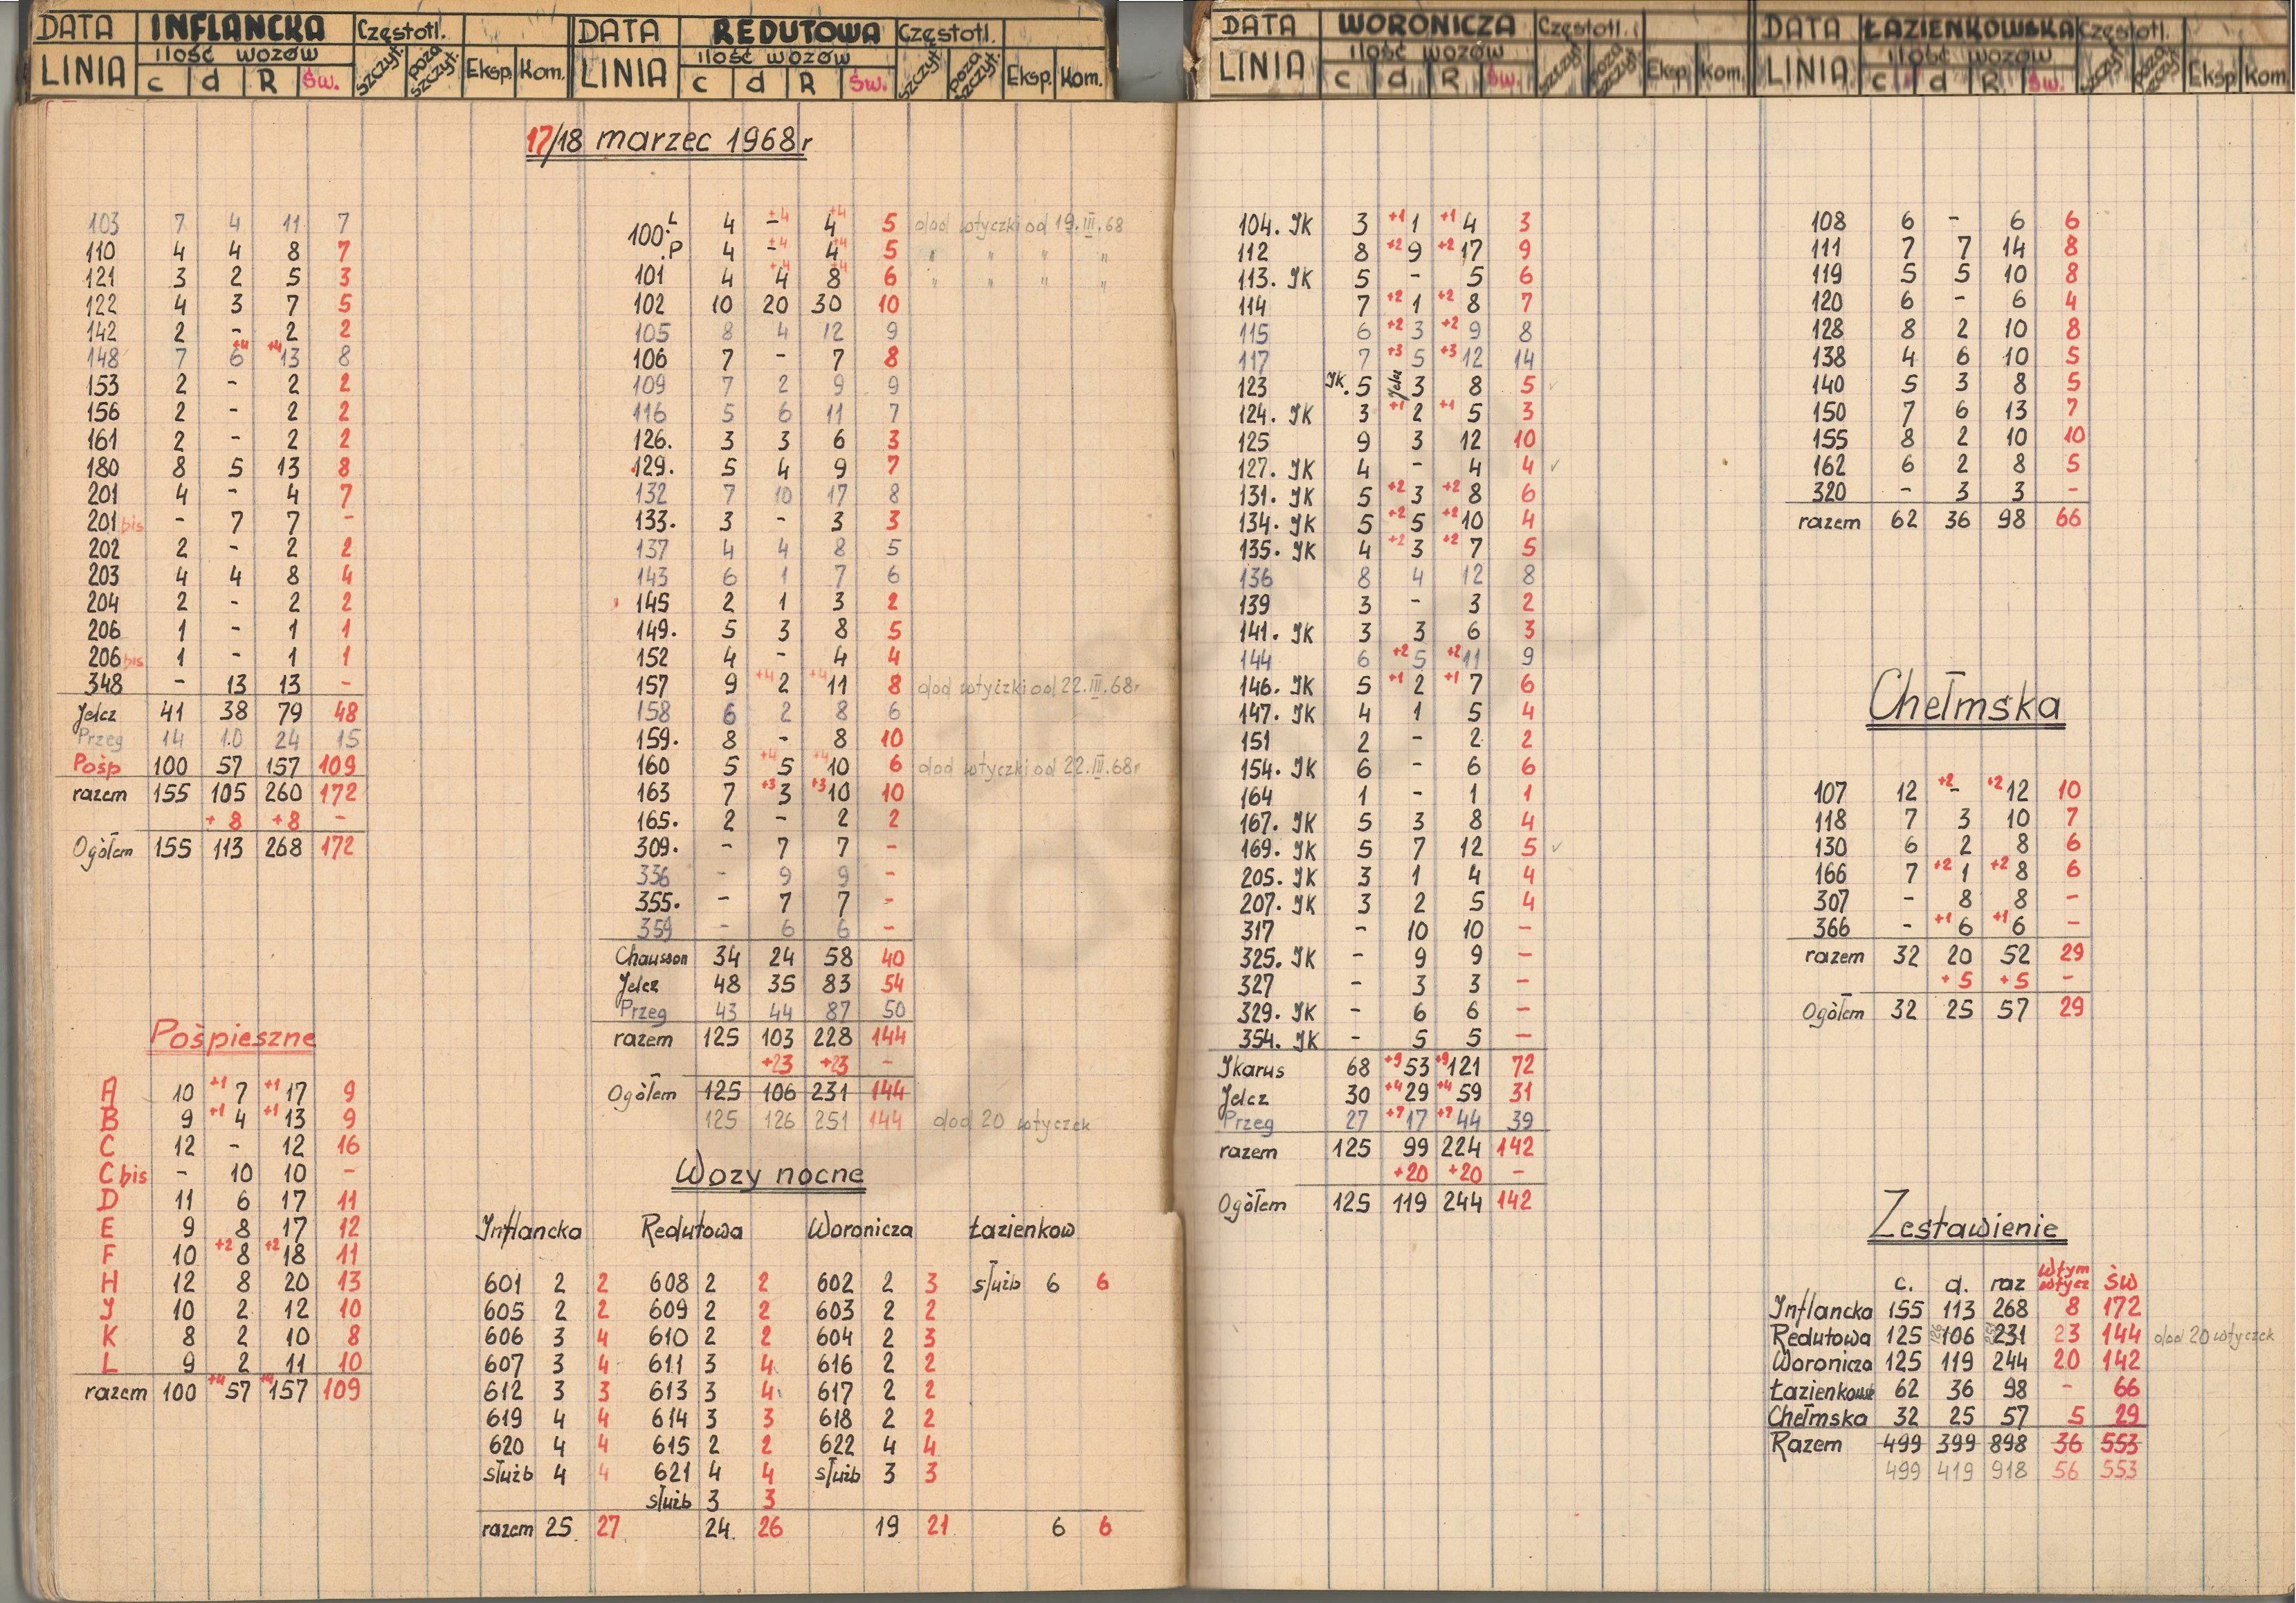 DATA INFLANCKA Częstotl.
LINIA ilość wozów c d R Św. szczyt. poza szczyt. Eksp. Kom.
DATA REDUTOWA Częstotl.
LINIA ilość wozów c d R Św. szczyt. poza szczyt. Eksp. Kom.
DATA WORONICZA Częstotl.
LINIA ilość wozów c d R Św. szczyt. poza szczyt. Eksp. Kom.
DATA ŁAZIENKOWSKA Częstotl.
LINIA ilość wozów c d R Św. szczyt. poza szczyt. Eksp Kom.
17/18 marzec 1968 r
103 7 4 11 7
110 4 4 8 7
121 3 2 5 3
122 4 3 7 5
142 2 - 2 2
148 7 +4 6 +4 13 8
153 2 - 2 2
156 2 - 2 2
161 2 - 2 2
180 8 5 13 8
201 4 - 4 7
201 bis - 7 7 -
202 2 - 2 2
203 4 4 8 4
204 2 - 2 2
206 1 - 1 1
206 bis 1 - 1 1
348 - 13 13 -
Jelcz 41 38 79 48
Przeg 14 10 24 15
Pośp 100 57 157 109
razem 155 105 260 172
+8 +8 -
Ogółem 155 113 268 172
Pośpieszne
A 10 +1 7 +1 17 9
B 9 +1 4 +1 13 9
C 12 - 12 16
C bis - 10 10 -
D 11 6 17 11
E 9 8 17 12
F 10 +2 8 +2 18 11
H 12 8 20 13
J 10 2 12 10
K 8 2 10 8
L 9 2 11 10
razem 100 +4 57 +4 157 109
100. L 4 +4 - +4 4 5 dod wtyczki od 19.III.68
P 4 +4 - +4 4 5 " " " "
101 4 +4 4 +4 8 6 " " " "
102 10 20 30 10
105 8 4 12 9
106 7 - 7 8
109 7 2 9 9
116 5 6 11 7
126. 3 3 6 3
129. 5 4 9 7
132 7 10 17 8
133. 3 - 3 3
137 4 4 8 5
143 6 1 7 6
145 2 1 3 2
149. 5 3 8 5
152 4 - 4 4
157 9 +4 2 +4 11 8 dod wtyczki od 22.III.68r
158 6 2 8 6
159. 8 - 8 10
160 5 +4 5 +4 10 6 dod wtyczki od 22.III.68r
163 7 +3 3 +3 10 10
165. 2 - 2 2
309. - 7 7 -
336 - 9 9 -
355. - 7 7 -
359 - 6 6 -
Chausson 34 24 58 40
Jelcz 48 35 83 54
Przeg 43 44 87 50
razem 125 103 228 144
+23 +23 -
Ogółem 125 106 231 144
125 126 251 144 dod 20 wtyczek
Wozy nocne
Inflancka Redutowa Woronicza Łazienkow
601 2 2 608 2 2 602 2 3 służb 6 6
605 2 2 609 2 2 603 2 2
606 3 4 610 2 2 604 2 3
607 3 4 611 3 4 616 2 2
612 3 3 613 3 4 617 2 2
619 4 4 614 3 3 618 2 2
620 4 4 615 2 2 622 4 4
służb 4 4 621 4 4 służb 3 3
służb 3 3
razem 25 27 24. 26 19 21 6 6
104. JK 3 +1 1 +1 4 3
112 8 +2 9 +2 17 9
113. JK 5 - 5 6
114 7 +2 1 +2 8 7
115 6 +2 3 +2 9 8
117 7 +3 5 +3 12 14
123 JK. 5 Jelcz 3 8 5 ✓
124. JK 3 +1 2 +1 5 3
125 9 3 12 10
127. JK 4 - 4 4 ✓
131. JK 5 +2 3 +2 8 6
134. JK 5 +2 5 +2 10 4
135. JK 4 +2 3 +2 7 5
136 8 4 12 8
139 3 - 3 2
141. JK 3 3 6 3
144 6 +2 5 +2 11 9
146. JK 5 +1 2 +1 7 6
147. JK 4 1 5 4
151 2 - 2 2
154. JK 6 - 6 6
164 1 - 1 1
167. JK 5 3 8 4
169. JK 5 7 12 5 ✓
205. JK 3 1 4 4
207. JK 3 2 5 4
317 - 10 10 -
325. JK - 9 9 -
327 - 3 3 -
329. JK - 6 6 -
354. JK - 5 5 -
Ikarus 68 +9 53 +9 121 72
Jelcz 30 +4 29 +4 59 31
Przeg 27 +7 17 +7 44 39
razem 125 99 224 142
+20 +20 -
Ogółem 125 119 244 142
108 6 - 6 6
111 7 7 14 8
119 5 5 10 8
120 6 - 6 4
128 8 2 10 8
138 4 6 10 5
140 5 3 8 5
150 7 6 13 7
155 8 2 10 10
162 6 2 8 5
320 - 3 3 -
razem 62 36 98 66
Chełmska
107 12 +2 - +2 12 10
118 7 3 10 7
130 6 2 8 6
166 7 +2 1 +2 8 6
307 - 8 8 -
366 - +1 6 +1 6 -
razem 32 20 52 29
+5 +5 -
Ogółem 32 25 57 29
Zestawienie
c. d. raz wtym wtycz św
Inflancka 155 113 268 8 172
Redutowa 125 126 106 251 231 23 144 dod 20 wtyczek
Woronicza 125 119 244 20 142
Łazienkowsk 62 36 98 - 66
Chełmska 32 25 57 5 29
Razem 499 399 898 36 553
499 419 918 56 553